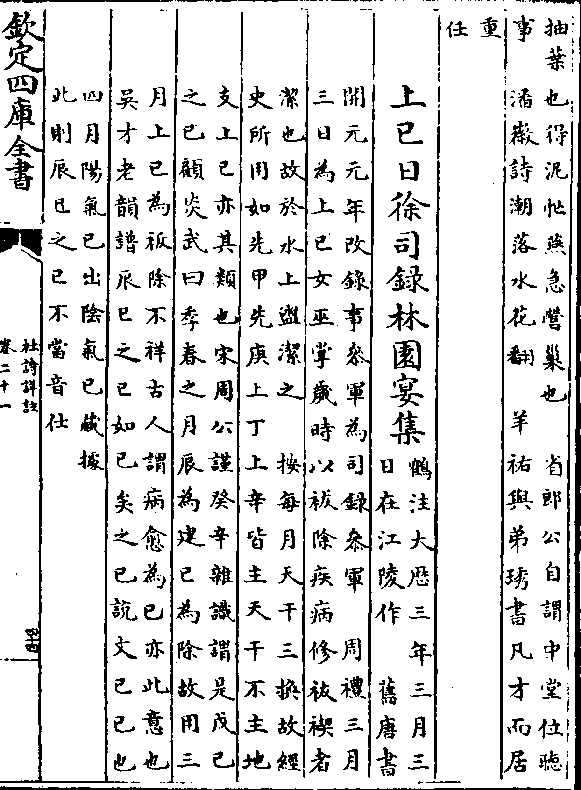 抽葉也得泥忙燕急營巢也　省郎公自謂中堂位聴
事　潘徽詩潮落水花翻　羊祜與弟琇書凡才而居
重
任
上巳日徐司録林園宴集
鶴注大厯三年三月三
日在江陵作　舊唐書
開元元年改録事參軍為司録參軍　周禮三月
三日為上巳女巫掌歲時以祓除疾病修祓禊者
潔也故於水上盥潔之　按每月天干三換故經
史所用如先甲先庚上丁上辛皆主天干不主地
支上巳亦其類也宋周公謹癸辛雜識謂是戊己
之己顧炎武曰季春之月辰為建巳為除故用三
月上巳為祓除不祥古人謂病愈為已亦此意也
吳才老韻譜辰巳之巳如已矣之已說文巳已也
四月陽氣已出陰氣已藏據
此則辰巳之巳不當音仕
欽定四庫全書
杜詩詳註
卷二十一